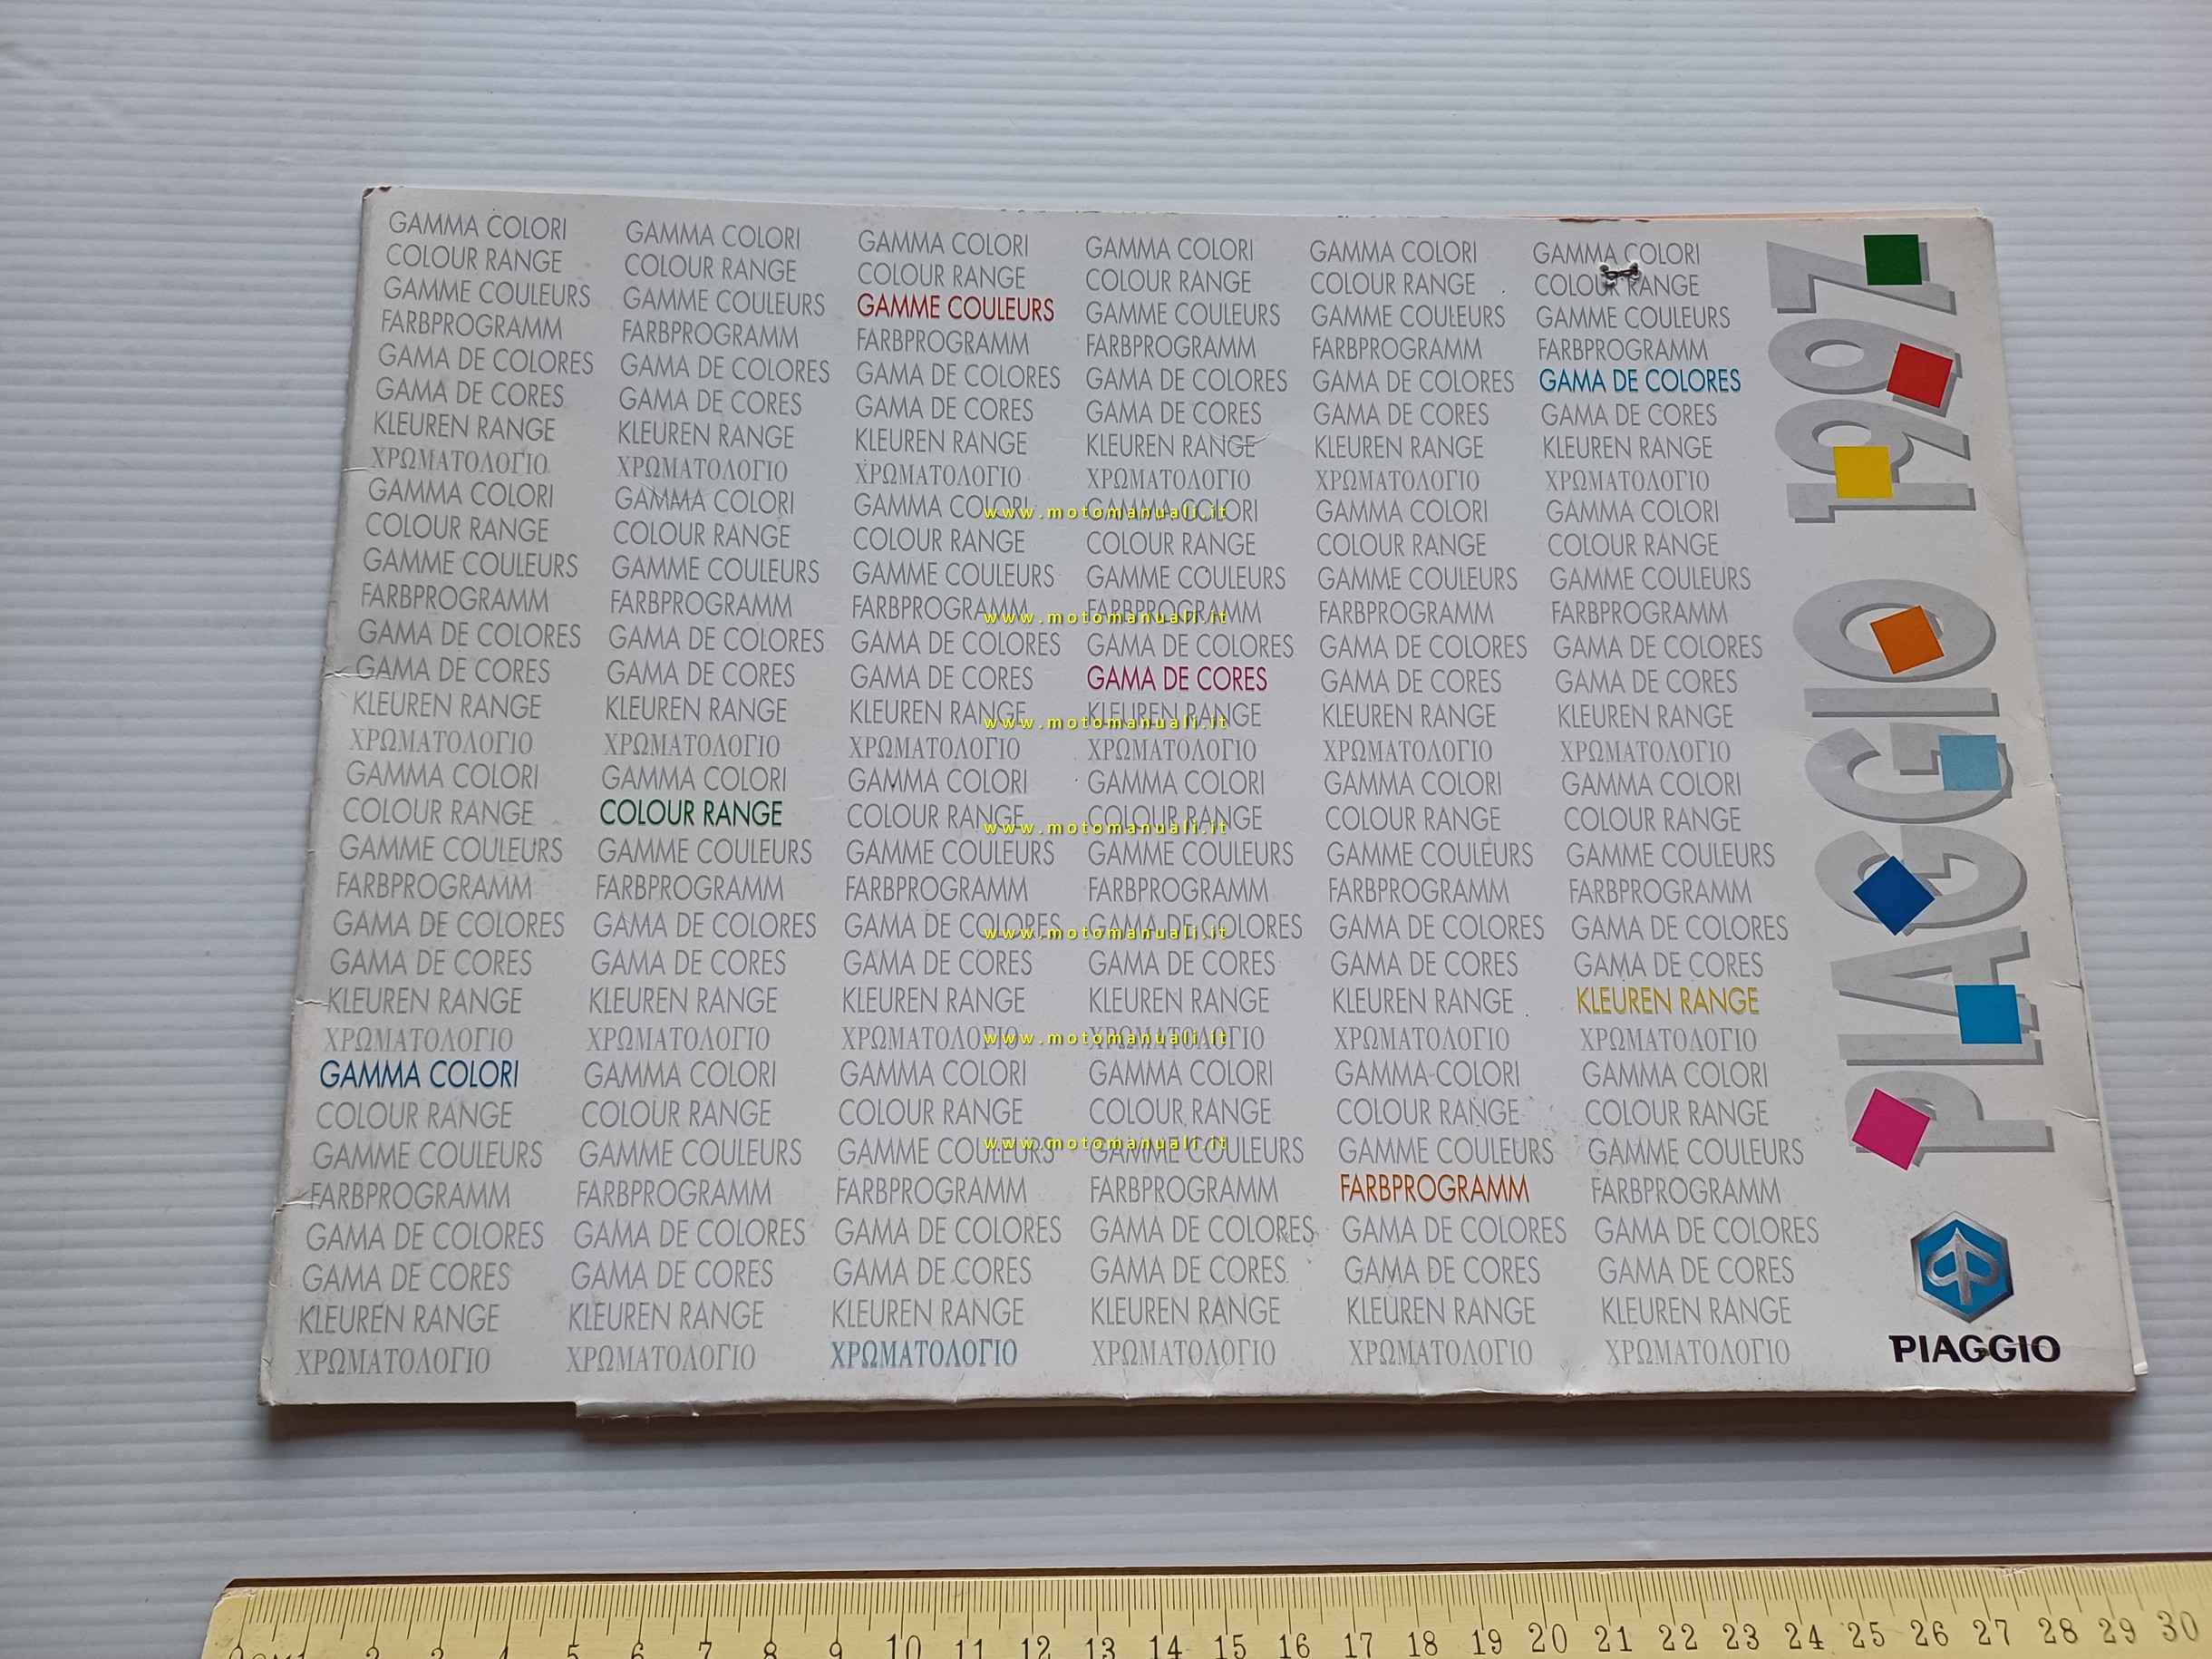 GAMMA COLORI GAMMA COLORI GAMMA COLORI GAMMA COLORI GAMMA COLORI GAMMA COLORI
COLOUR RANGE COLOUR RANGE COLOUR RANGE COLOUR RANGE COLOUR RANGE COLOUR RANGE
GAMME COULEURS GAMME COULEURS GAMME COULEURS GAMME COULEURS GAMME COULEURS GAMME COULEURS
FARBPROGRAMM FARBPROGRAMM FARBPROGRAMM FARBPROGRAMM FARBPROGRAMM FARBPROGRAMM
GAMA DE COLORES GAMA DE COLORES GAMA DE COLORES GAMA DE COLORES GAMA DE COLORES GAMA DE COLORES
GAMA DE CORES GAMA DE CORES GAMA DE CORES GAMA DE CORES GAMA DE CORES GAMA DE CORES
KLEUREN RANGE KLEUREN RANGE KLEUREN RANGE KLEUREN RANGE KLEUREN RANGE KLEUREN RANGE
ΧΡΩΜΑΤΟΛΟΓΙΟ ΧΡΩΜΑΤΟΛΟΓΙΟ ΧΡΩΜΑΤΟΛΟΓΙΟ ΧΡΩΜΑΤΟΛΟΓΙΟ ΧΡΩΜΑΤΟΛΟΓΙΟ ΧΡΩΜΑΤΟΛΟΓΙΟ
GAMMA COLORI GAMMA COLORI GAMMA COLORI GAMMA COLORI GAMMA COLORI GAMMA COLORI
www.motomanuali.it
COLOUR RANGE COLOUR RANGE COLOUR RANGE COLOUR RANGE COLOUR RANGE COLOUR RANGE
GAMME COULEURS GAMME COULEURS GAMME COULEURS GAMME COULEURS GAMME COULEURS GAMME COULEURS
FARBPROGRAMM FARBPROGRAMM FARBPROGRAMM FARBPROGRAMM FARBPROGRAMM FARBPROGRAMM
www.motomanuali.it
GAMA DE COLORES GAMA DE COLORES GAMA DE COLORES GAMA DE COLORES GAMA DE COLORES GAMA DE COLORES
GAMA DE CORES GAMA DE CORES GAMA DE CORES GAMA DE CORES GAMA DE CORES GAMA DE CORES
KLEUREN RANGE KLEUREN RANGE KLEUREN RANGE KLEUREN RANGE KLEUREN RANGE KLEUREN RANGE
www.motomanuali.it
ΧΡΩΜΑΤΟΛΟΓΙΟ ΧΡΩΜΑΤΟΛΟΓΙΟ ΧΡΩΜΑΤΟΛΟΓΙΟ ΧΡΩΜΑΤΟΛΟΓΙΟ ΧΡΩΜΑΤΟΛΟΓΙΟ ΧΡΩΜΑΤΟΛΟΓΙΟ
GAMMA COLORI GAMMA COLORI GAMMA COLORI GAMMA COLORI GAMMA COLORI GAMMA COLORI
COLOUR RANGE COLOUR RANGE COLOUR RANGE COLOUR RANGE COLOUR RANGE COLOUR RANGE
www.motomanuali.it
GAMME COULEURS GAMME COULEURS GAMME COULEURS GAMME COULEURS GAMME COULEURS GAMME COULEURS
FARBPROGRAMM FARBPROGRAMM FARBPROGRAMM FARBPROGRAMM FARBPROGRAMM FARBPROGRAMM
GAMA DE COLORES GAMA DE COLORES GAMA DE COLORES GAMA DE COLORES GAMA DE COLORES GAMA DE COLORES
www.motomanuali.it
GAMA DE CORES GAMA DE CORES GAMA DE CORES GAMA DE CORES GAMA DE CORES GAMA DE CORES
KLEUREN RANGE KLEUREN RANGE KLEUREN RANGE KLEUREN RANGE KLEUREN RANGE KLEUREN RANGE
ΧΡΩΜΑΤΟΛΟΓΙΟ ΧΡΩΜΑΤΟΛΟΓΙΟ ΧΡΩΜΑΤΟΛΟΓΙΟ ΧΡΩΜΑΤΟΛΟΓΙΟ ΧΡΩΜΑΤΟΛΟΓΙΟ ΧΡΩΜΑΤΟΛΟΓΙΟ
www.motomanuali.it
GAMMA COLORI GAMMA COLORI GAMMA COLORI GAMMA COLORI GAMMA COLORI GAMMA COLORI
COLOUR RANGE COLOUR RANGE COLOUR RANGE COLOUR RANGE COLOUR RANGE COLOUR RANGE
GAMME COULEURS GAMME COULEURS GAMME COULEURS GAMME COULEURS GAMME COULEURS GAMME COULEURS
www.motomanuali.it
FARBPROGRAMM FARBPROGRAMM FARBPROGRAMM FARBPROGRAMM FARBPROGRAMM FARBPROGRAMM
GAMA DE COLORES GAMA DE COLORES GAMA DE COLORES GAMA DE COLORES GAMA DE COLORES GAMA DE COLORES
GAMA DE CORES GAMA DE CORES GAMA DE CORES GAMA DE CORES GAMA DE CORES GAMA DE CORES
KLEUREN RANGE KLEUREN RANGE KLEUREN RANGE KLEUREN RANGE KLEUREN RANGE KLEUREN RANGE
ΧΡΩΜΑΤΟΛΟΓΙΟ ΧΡΩΜΑΤΟΛΟΓΙΟ ΧΡΩΜΑΤΟΛΟΓΙΟ ΧΡΩΜΑΤΟΛΟΓΙΟ ΧΡΩΜΑΤΟΛΟΓΙΟ ΧΡΩΜΑΤΟΛΟΓΙΟ
PIAGGIO 1997
PIAGGIO
0 CM1 2 3 4 5 6 7 8 9 10 11 12 13 14 15 16 17 18 19 20 21 22 23 24 25 26 27 28 29 30